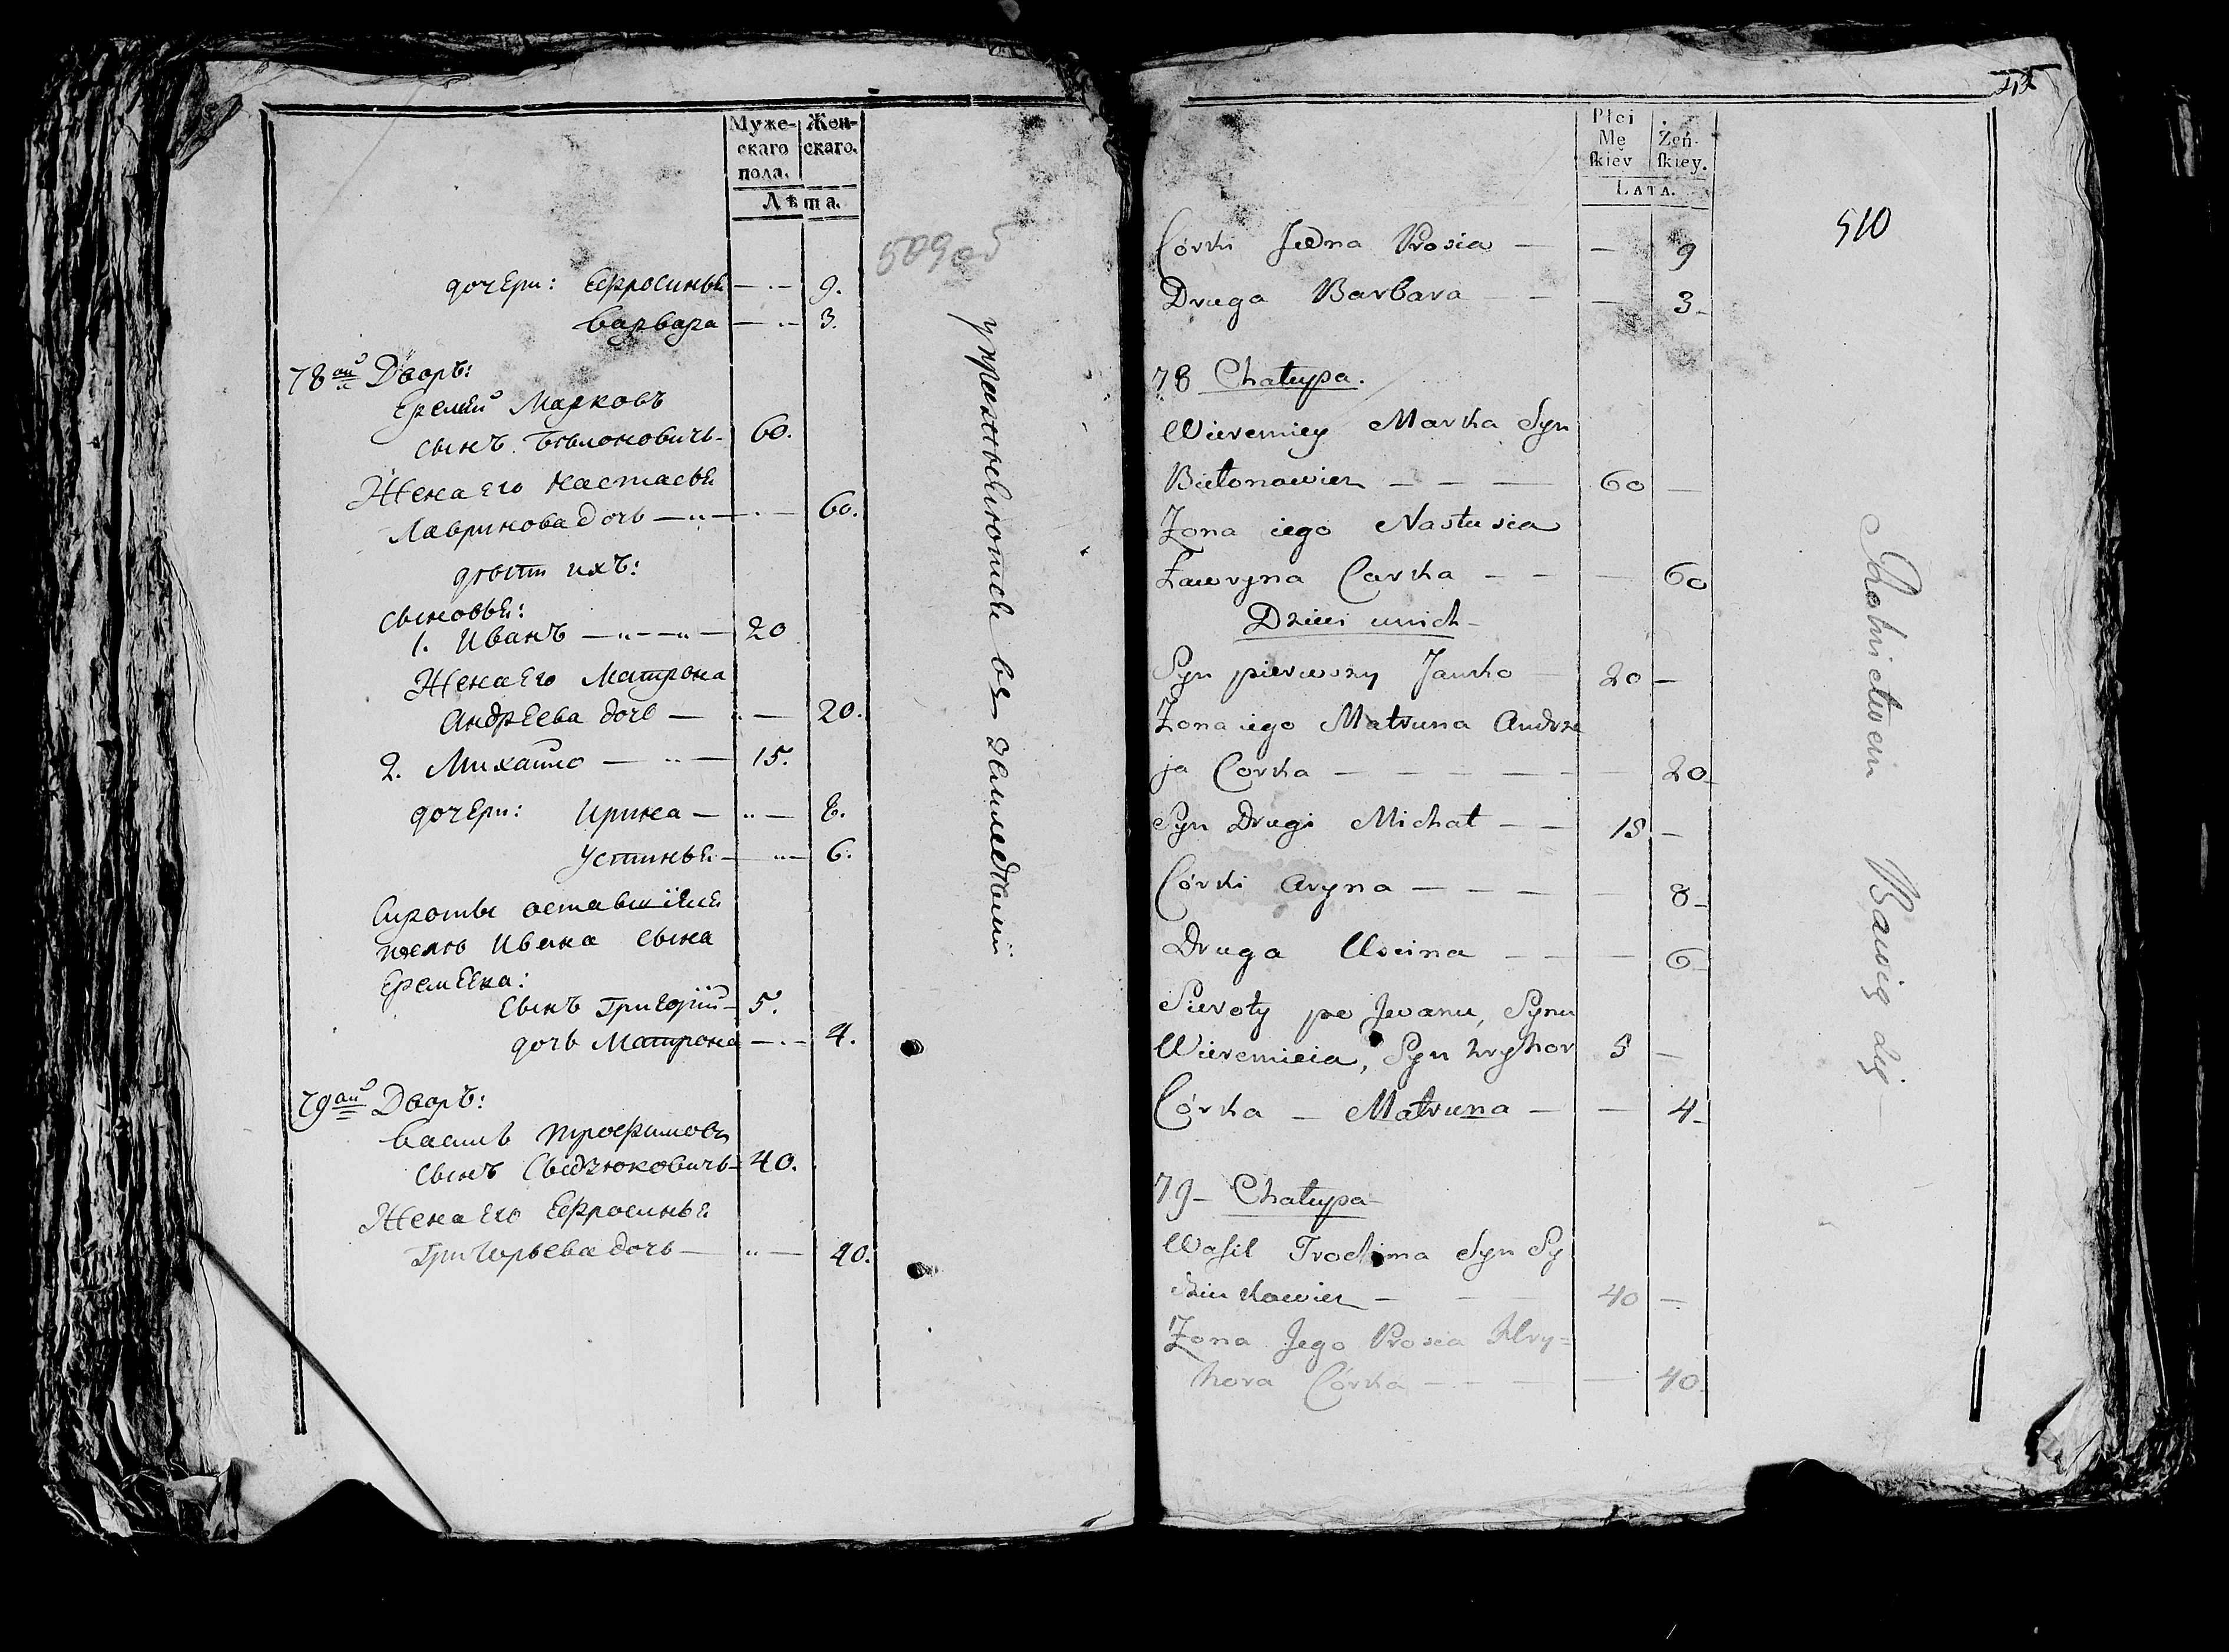 Муже-
скаго
пола.
Жен-
скаго.
Лѣта.
509об
дочери: Ефросинья — 9.
Варвара — 3.
78ой Дворъ:
Еремей Марковъ
сынъ Бѣлоновичь — 60.
Жена его Настасья
Лавринова дочь — 60.
дѣти ихъ:
сыновья:
1. Иванъ — 20
Жена его Матрона
Андреева дочь — 20.
2. Михайло — 15.
дочери: Ирина — 8.
Устинья — 6.
Сироты оставшіеся
Ивана сына
Еремеева:
сынъ Григорій — 5.
дочь Матрона — 4.
79ой Дворъ:
Василь Трофимовъ
сынъ Сыдзюковичь — 40.
Жена его Ефросинья
Григорьева дочь — 40.
упражняются въ земледѣліи
Płci
Mę
ſkiey
Żeń-
ſkiey.
LATA.
510
Córki Jedna Prosia — — 9
Druga Barbara — — 3
78 Chałupa.
Wieremiey Marka Syn
Biełonowicz — 60 —
Żona iego Nastusia
Ławryna Corka — — 60
Dzieci unich
Syn pierwszy Janko — 20 —
Żona iego Matruna Andrze
ja Corka — — 20
Syn Drugi Michał — 15 —
Córki Aryna — — 8
Druga Uscina — — 6
Sieroty po Jwanu, Synu
Wieremieia, Syn Hryhor 5 —
Córka — Matruna — — 4
79 Chałupa
Waſil Trochima Syn Sy
dziukowicz — 40 —
Żona Jego Prosia Hry=
hora Córka — — 40
Rolnictwem Bawią się